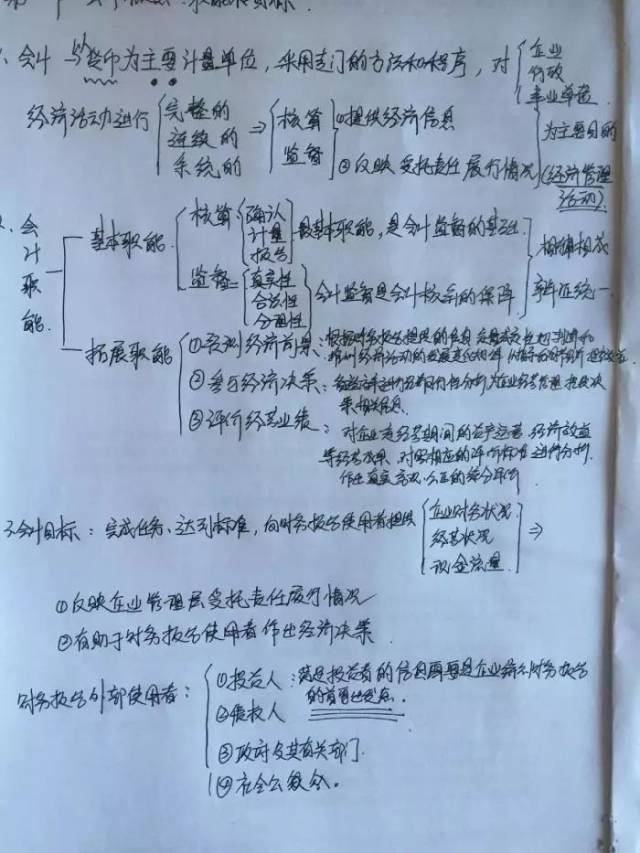 1、会计 以货币为主要计量单位，采用专门的方法和程序，对 企业 行政 事业单位
经济活动进行 完整的 连续的 系统的 ⇒ 核算 监督 ①提供经济信息 ②反映受托责任履行情况 为主要目的 (经济管理活动)
2、会计职能
基本职能
核算 确认 计量 报告 最基本职能，是会计监督的基础
监督 真实性 合法性 合理性 会计监督是会计核算的保障
相辅相成 辩证统一
拓展职能
①预测经济前景：根据财务报告提供的信息
②参与经济决策：
③评价经营业绩：对企业 经营期间的资产运营、经济效益
等经营成果，对照相应的评价标准 进行分析，
作出真实、客观、公正的综合评价
3、会计目标：完成任务、达到标准，向财务报告使用者提供 企业财务状况 经营状况 现金流量 ⇒
①反映企业管理层受托责任履行情况
②有助于财务报告使用者作出经济决策
财务报告外部使用者：
①投资人：满足投资者的信息需要是企业编制财务报告
的首要出发点.
②债权人
③政府及其有关部门.
④社会公众.